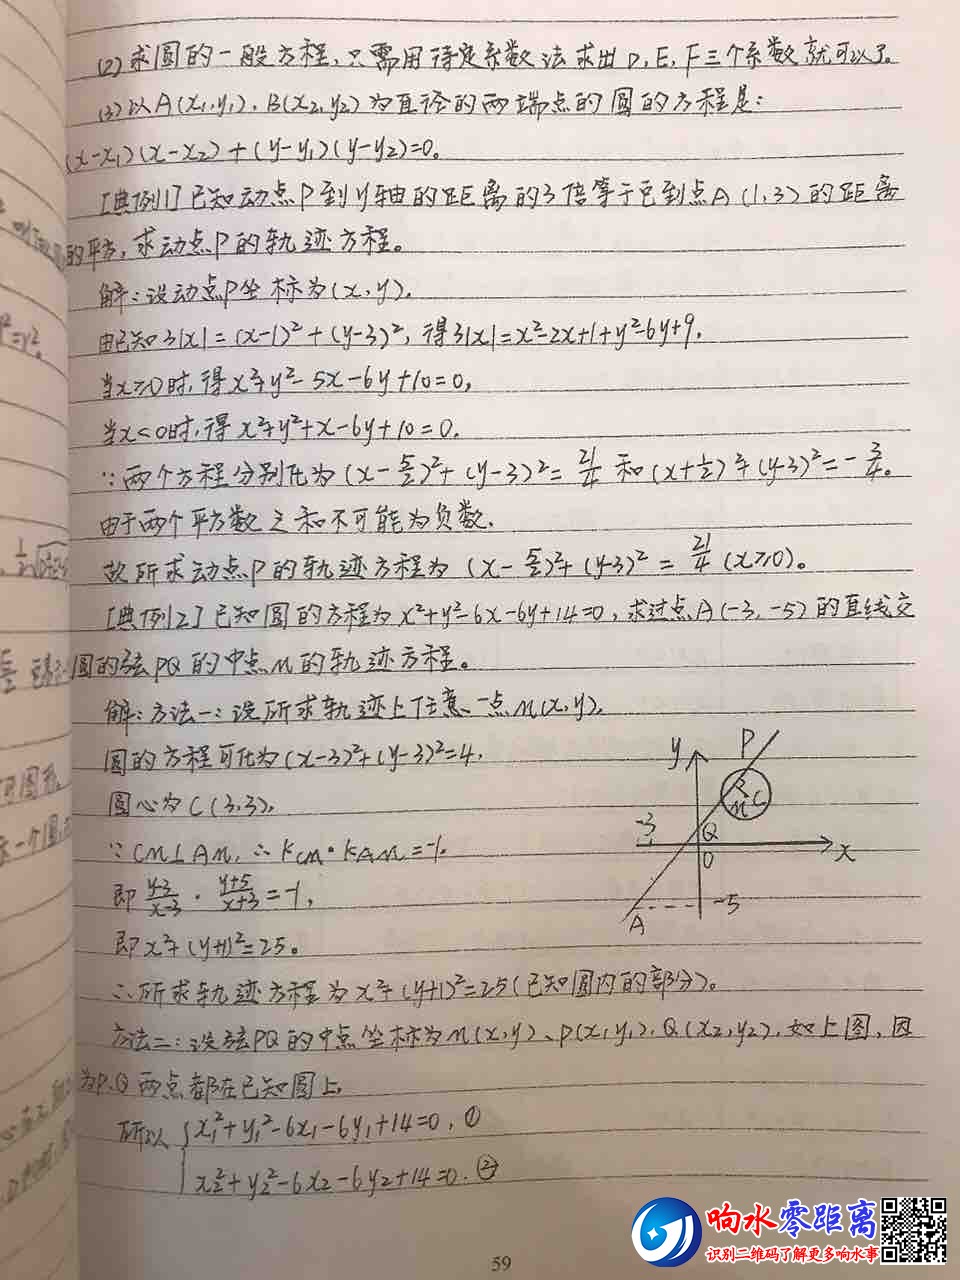 (2)求圆的一般方程,只需用待定系数法求出D,E,F三个系数就可以了。
(3)以A(x₁,y₁),B(x₂,y₂)为直径的两端点的圆的方程是:
(x-x₁)(x-x₂)+(y-y₁)(y-y₂)=0。
[典例1]已知动点P到y轴的距离的3倍等于它到点A(1,3)的距离
的平方,求动点P的轨迹方程。
解:设动点P坐标为(x,y),
由已知3|x|=(x-1)²+(y-3)²,得3|x|=x²-2x+1+y²-6y+9,
当x≥0时,得x²+y²-5x-6y+10=0,
当x<0时,得x²+y²+x-6y+10=0.
∵两个方程分别化为(x-5/2)²+(y-3)²=21/4和(x+1/2)²+(y-3)²=-3/4。
由于两个平方数之和不可能为负数,
故所求动点P的轨迹方程为(x-5/2)²+(y-3)²=21/4(x≥0)。
[典例2]已知圆的方程为x²+y²-6x-6y+14=0,求过点A(-3,-5)的直线交
圆的弦PQ的中点M的轨迹方程。
解:方法一:设所求轨迹上任意一点M(x,y),
圆的方程可化为(x-3)²+(y-3)²=4,
圆心为C(3,3),
∵CM⊥AM,∴kCM·kAM=-1.
即(y-3)/(x-3)·(y+5)/(x+3)=-1,
即x²+(y+1)²=25。
∴所求轨迹方程为x²+(y+1)²=25(已知圆内的部分)。
方法二:设弦PQ的中点坐标为M(x,y)、P(x₁,y₁),Q(x₂,y₂),如上图,因
为P、Q两点都在已知圆上,
所以{x₁²+y₁²-6x₁-6y₁+14=0,①
x₂²+y₂²-6x₂-6y₂+14=0.②
y
P
M
C
-3
Q
O
x
-5
A
59
响水零距离
识别二维码了解更多响水事